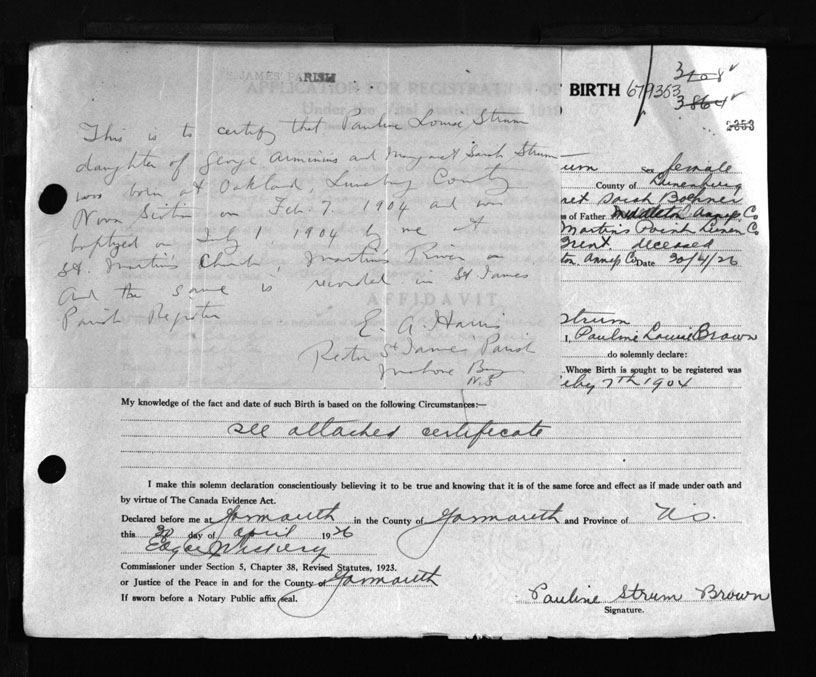 ST. JAMES' PARISH
This is to certify that Pauline Louise Strum
daughter of George Arminius and Margaret Sarah Strum
was born at Oakland, Lunenburg County
Nova Scotia on Feb. 7. 1904 and was
baptized on July 1. 1904 by me at
St. Martin's Church, Martin's River
and the same is recorded in St James
Parish Register
E. A. Harris
Rector St James' Parish
Mahone Bay
N.S
APPLICATION FOR REGISTRATION OF BIRTH 679353
3108
3864
2353
rum Sex female
County of Lunenburg
ret Sarah Boehner
s of Father Middleton Annap. Co
Martins Point Lunen Co
deceased
ton. Annap Co Date 30/4/26
AFFIDAVIT
Strum
I, Pauline Louise Brown
do solemnly declare:
Whose Birth is sought to be registered was
7th 1904
My knowledge of the fact and date of such Birth is based on the following Circumstances:—
see attached certificate
I make this solemn declaration conscientiously believing it to be true and knowing that it is of the same force and effect as if made under oath and
by virtue of The Canada Evidence Act.
Declared before me at Yarmouth in the County of Yarmouth and Province of N.S.
this 30 day of April 1926
Commissioner under Section 5, Chapter 38, Revised Statutes, 1923.
or Justice of the Peace in and for the County of Yarmouth
If sworn before a Notary Public affix seal.
Pauline Strum Brown
Signature.